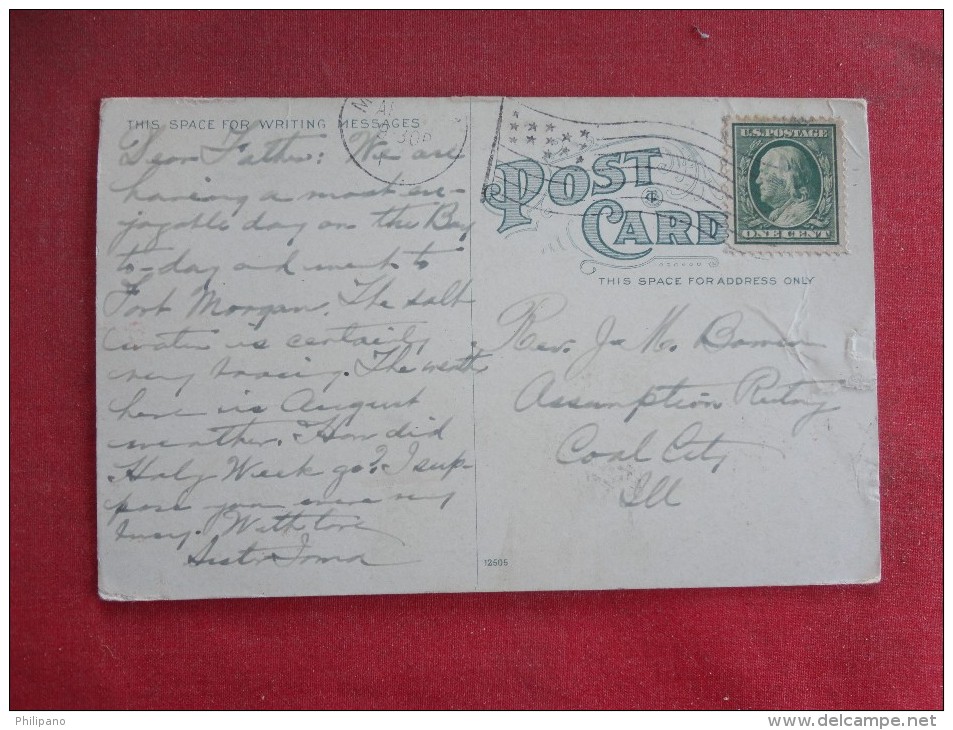 THIS SPACE FOR WRITING MESSAGES
Dear Father: We are
having a most en-
joyable day on the Bay
to-day and went to
Fort Morgan. The salt
water is certainly
very bracing. The weath
here is August
weather. How did
Holy Week go? I sup-
pose you were very
busy. With love
Sister
POST
CARD
THIS SPACE FOR ADDRESS ONLY
U.S. POSTAGE
ONE CENT
Rev. J. M. Bowen
Assumption Retry
Coal City
Ill
12605
Philipano
www.delcampe.net